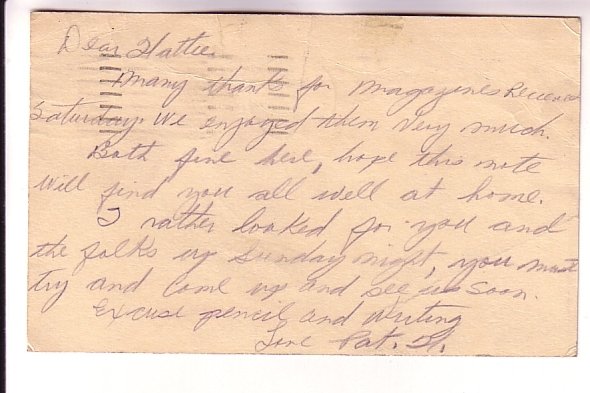 Dear Hattie
Many thanks for magazines Received
Saturday. We enjoyed them very much.
Both fine here, hope this note
will find you all well at home.
I rather looked for you and
the folks up Sunday night, you must
try and come up and see us soon.
Excuse pencil and writing
Love Pat.